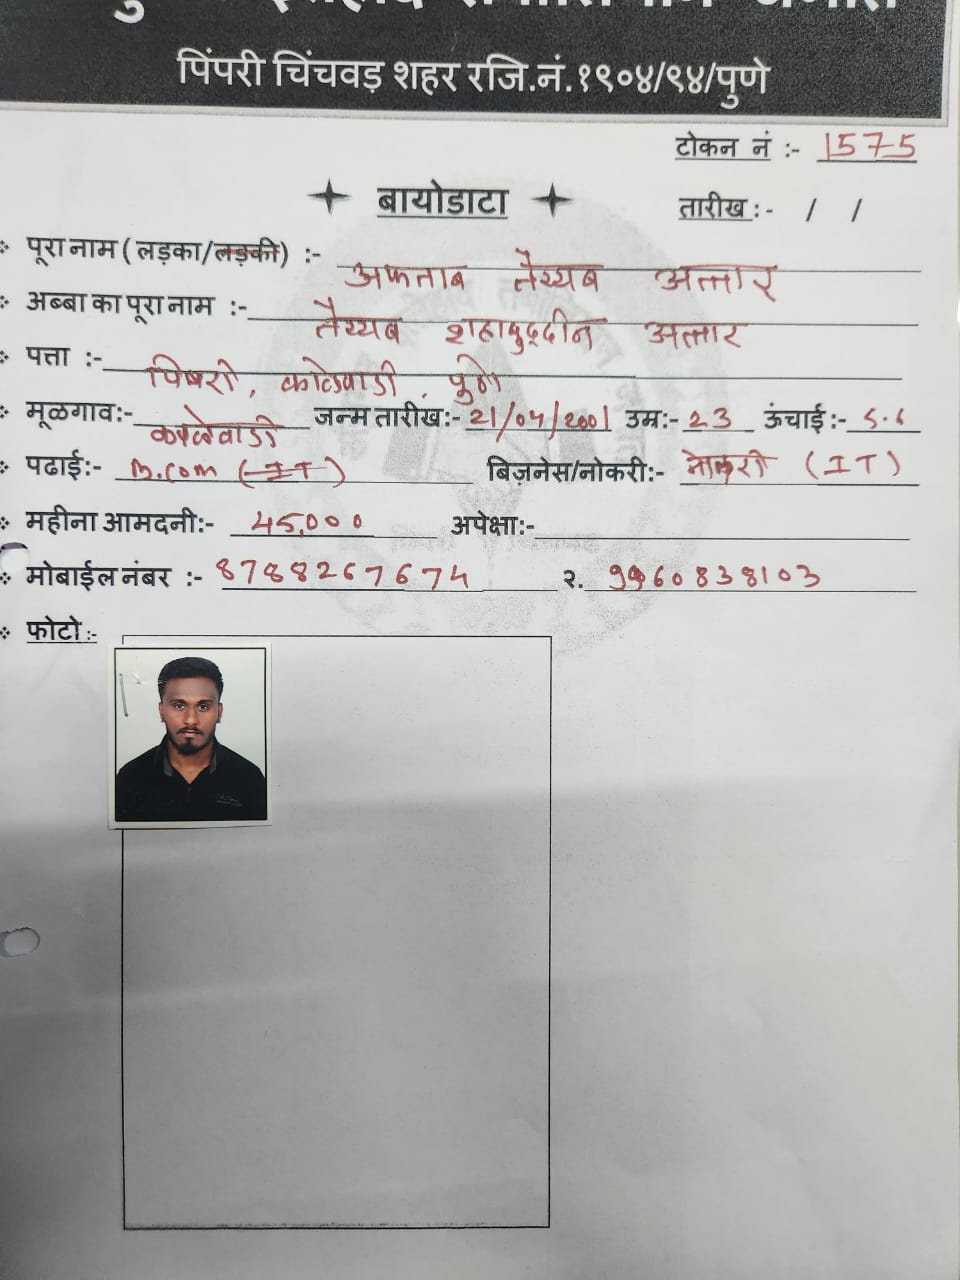 पिंपरी चिंचवड़ शहर रजि.नं.१९०४/९४/पुणे
टोकन नं :- 1575
बायोडाटा
तारीख :- / /
पूरा नाम ( लड़का/लड़की) :- अफताब तैय्यब अत्तार
अब्बा का पूरा नाम :- तैय्यब शहाबुद्दीन अत्तार
पत्ता :- पिंपरी, काळेवाडी, पुणे
मूळगाव:- काळेवाडी जन्म तारीख:- 21/04/2001 उम्र:- 23 ऊंचाई :- 5.6
पढाई:- B.com (IT) बिज़नेस/नोकरी:- नोकरी (IT)
महीना आमदनी:- 45,000 अपेक्षा:-
मोबाईल नंबर :- 8788267674 २. 9960838103
फोटो :-